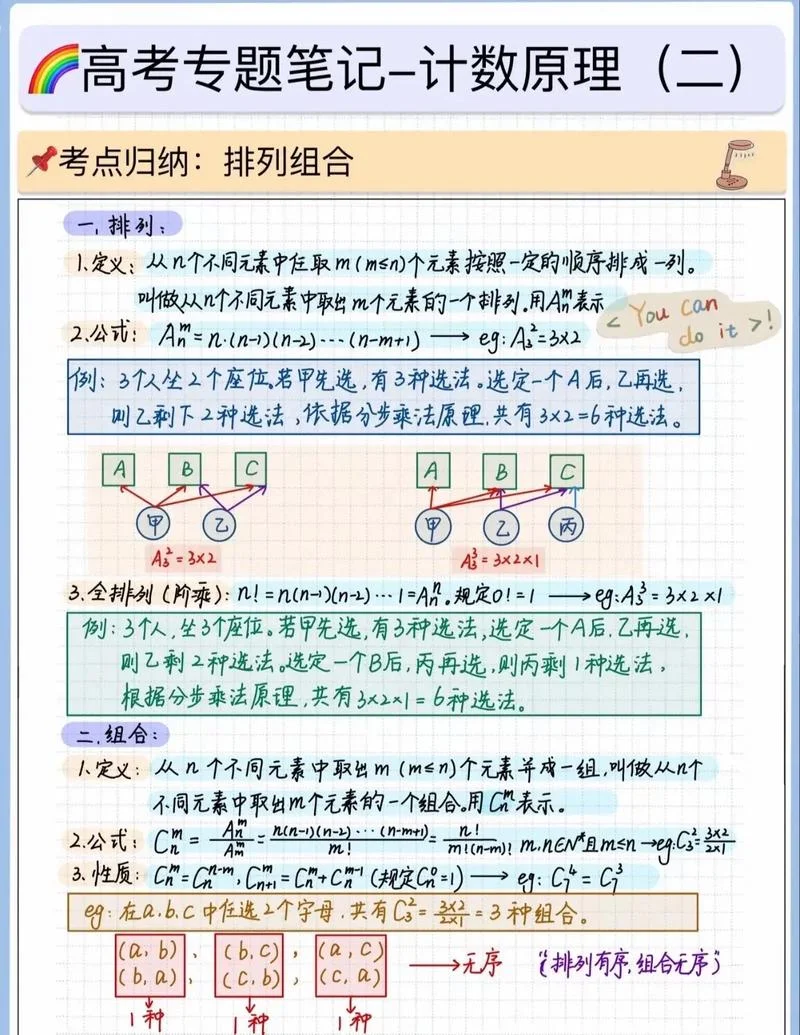 高考专题笔记-计数原理（二）
考点归纳：排列组合
一、排列：
1.定义：从n个不同元素中任取m(m≤n)个元素按照一定的顺序排成一列。
叫做从n个不同元素中取出m个元素的一个排列。用Aₙᵐ表示
< You can
do it >!
2.公式：Aₙᵐ=n·(n-1)(n-2)···(n-m+1) → eg:A₃²=3×2
例：3个人坐2个座位。若甲先选，有3种选法。选定一个A后，乙再选，
则乙剩下2种选法，依据分步乘法原理，共有3×2=6种选法。
A B C A B C
甲 乙 甲 乙 丙
A₃²=3×2 A₃³=3×2×1
3.全排列（阶乘）：n!=n(n-1)(n-2)···1=Aₙⁿ。规定0!=1 → eg:A₃³=3×2×1
例：3个人，坐3个座位。若甲先选，有3种选法，选定一个A后，乙再选，
则乙剩2种选法。选定一个B后，丙再选，则丙剩1种选法，
根据分步乘法原理，共有3×2×1=6种选法。
二、组合：
1.定义：从n个不同元素中取出m(m≤n)个元素并成一组，叫做从n个
不同元素中取出m个元素的一个组合。用Cₙᵐ表示。
2.公式：Cₙᵐ=Aₙᵐ/Aₘᵐ=n(n-1)(n-2)···(n-m+1)/m!=n!/m!(n-m)! m,n∈N*且m≤n→eg:C₃²=3×2/2×1
3.性质：Cₙᵐ=Cₙⁿ⁻ᵐ, Cₙ₊₁ᵐ=Cₙᵐ+Cₙᵐ⁻¹(规定Cₙ⁰=1) → eg: C₇⁴=C₇³
eg:在a,b,c中任选2个字母，共有C₃²=3×2/2×1=3种组合。
(a,b)、(b,c)，(a,c)
(b,a)、(c,b)，(c,a) → 无序 “(排列有序，组合无序)”
1种 1种 1种